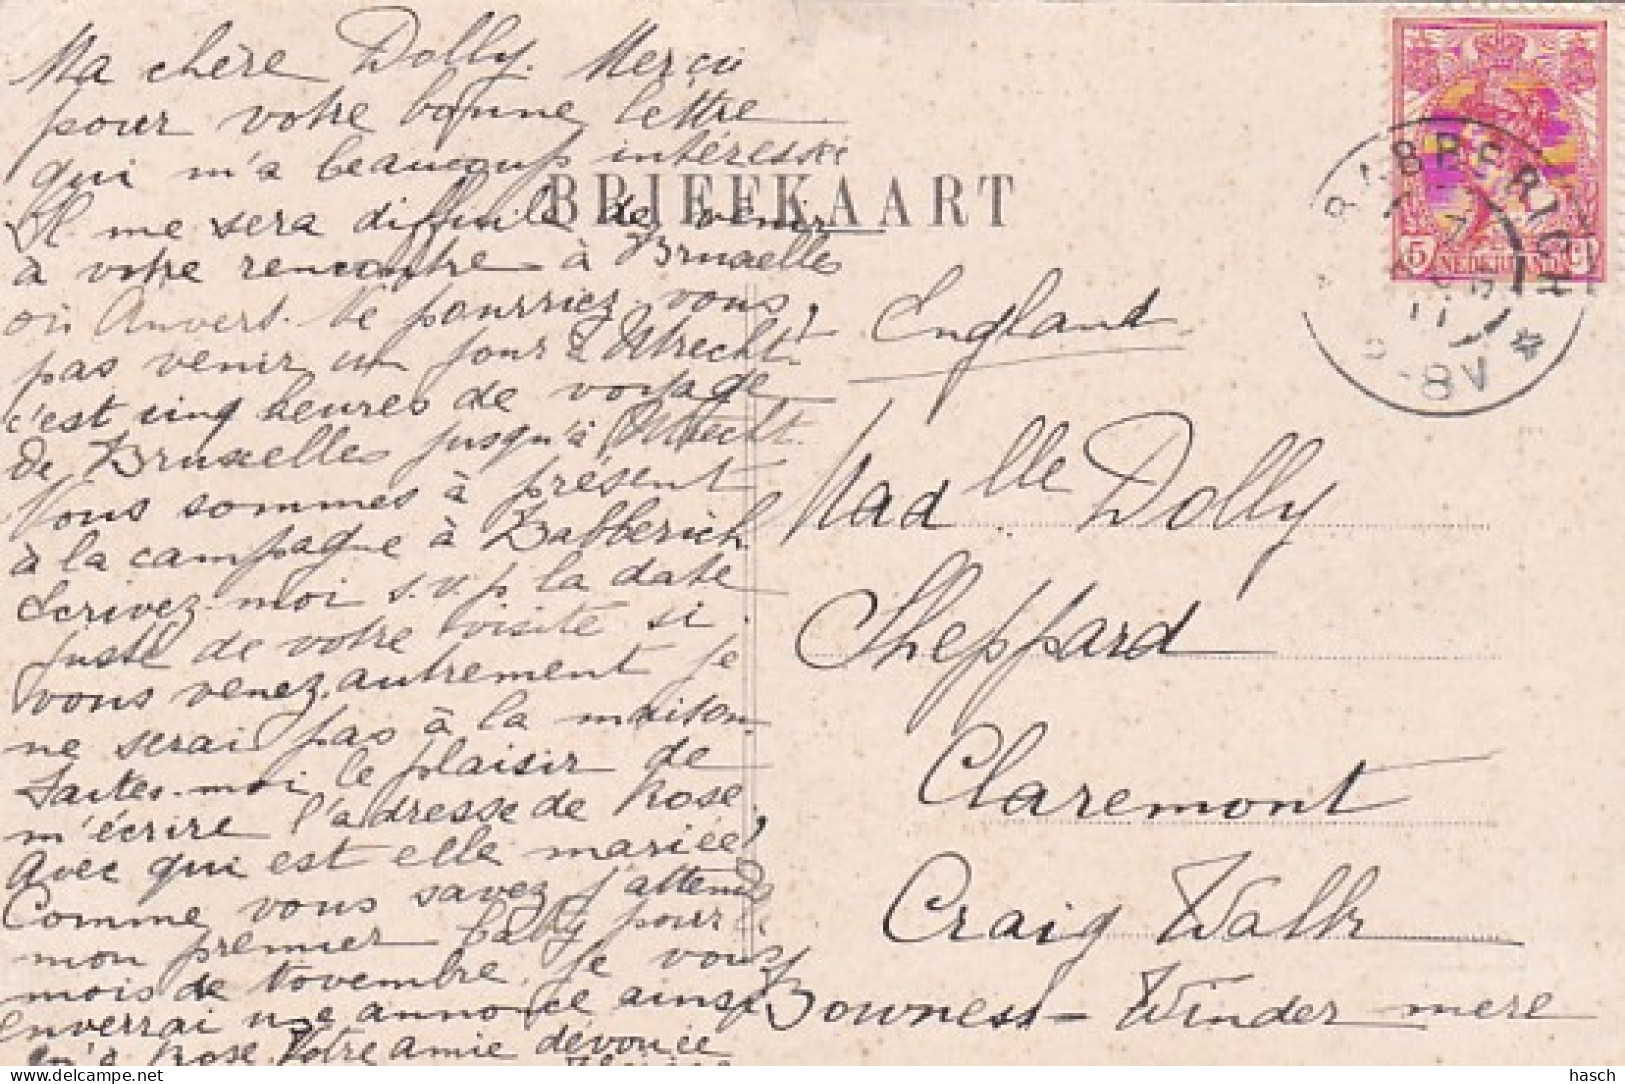 Ma chère Dolly. Merçu
pour votre bonne lettre
qui m'a beaucoup intéressée
Il me sera difficile de venir
à votre rencontre à Bruxelles
où Anvers. Ne pourriez vous
pas venir un jour à Utrecht?
c'est cinq heures de voyage
de Bruxelles jusqu'à Utrecht.
Nous sommes à présent
à la campagne à Babberich
Ecrivez-moi s.v.p la date
juste de votre visite si
vous venez, autrement je
ne serai pas à la maison.
Faites-moi le plaisir de
m'écrire l'adresse de Rose.
Avec qui est elle mariée?
Comme vous savez j'attends
mon premier baby pour le
mois de Novembre. Je vous
enverrai une annonce ainsi
qu'a Rose. Votre amie dévouée
BRIEFKAART
England
Madlle. Dolly
Sheppard
Claremont
Craig Walk
Bowness-Windermere
5 NEDERLAND Ct
BABBERICH
7
11
5-8V
hasch